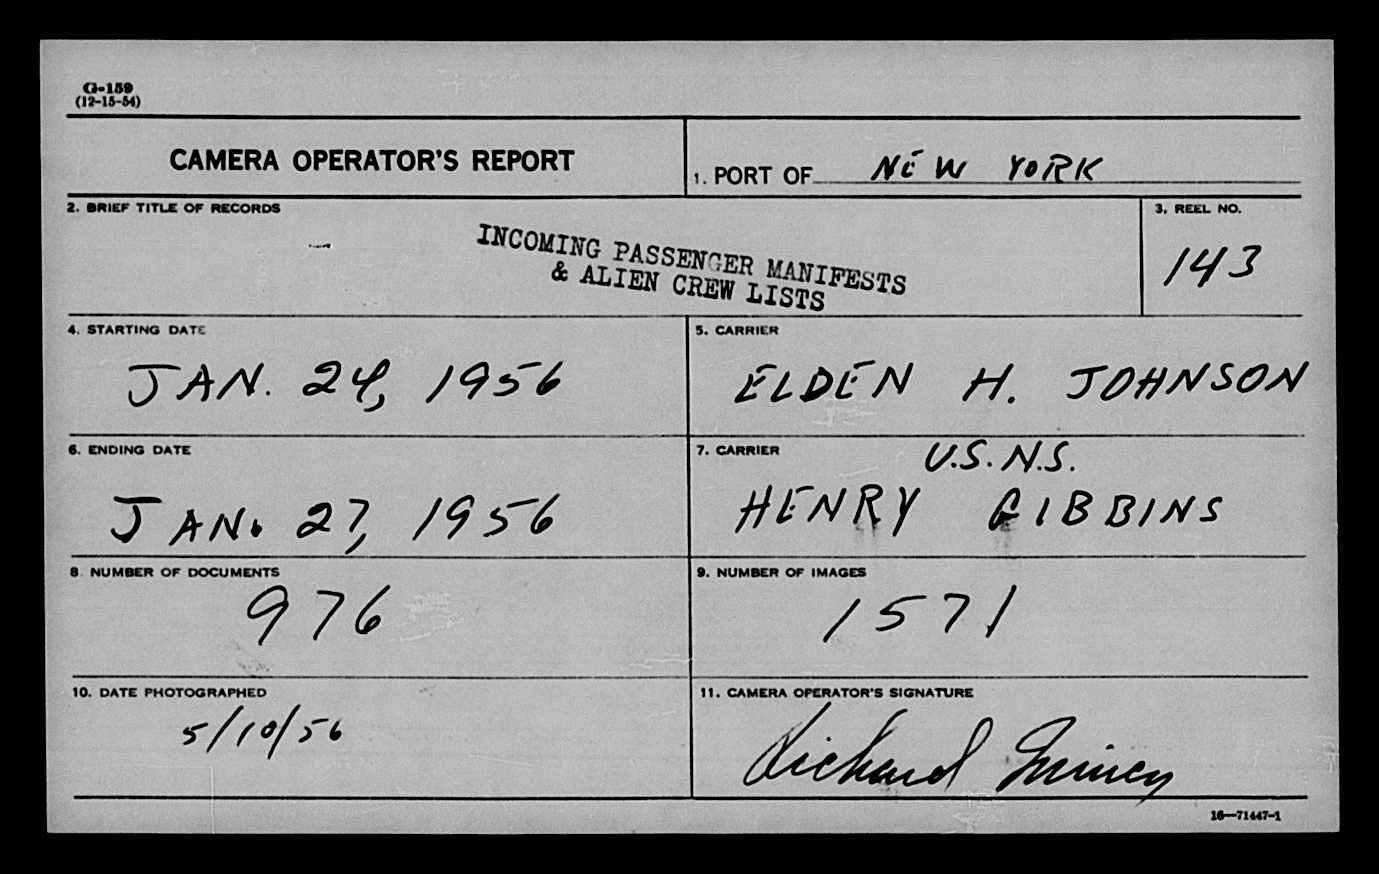 G-159
(12-15-54)
CAMERA OPERATOR'S REPORT
1. PORT OF NEW YORK
2. BRIEF TITLE OF RECORDS
INCOMING PASSENGER MANIFESTS
& ALIEN CREW LISTS
3. REEL NO.
143
4. STARTING DATE
JAN. 24, 1956
5. CARRIER
ELDEN H. JOHNSON
6. ENDING DATE
JAN. 27, 1956
7. CARRIER
U.S.N.S.
HENRY GIBBINS
8. NUMBER OF DOCUMENTS
976
9. NUMBER OF IMAGES
1571
10. DATE PHOTOGRAPHED
5/10/56
11. CAMERA OPERATOR'S SIGNATURE
Richard
16—71447-1